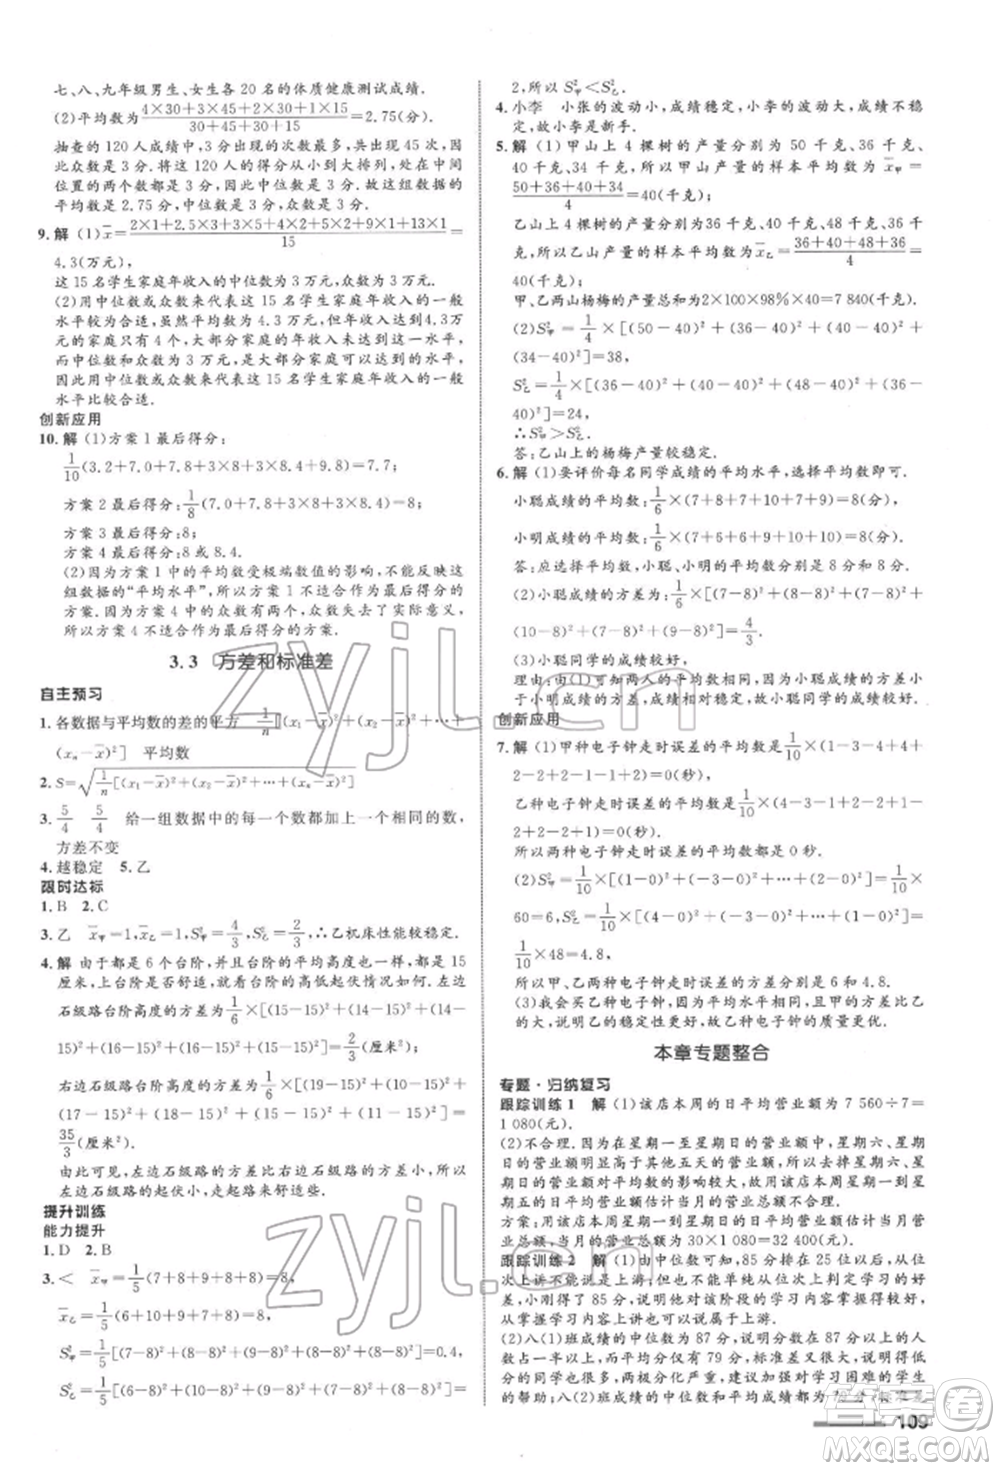 七、八、九年级男生、女生各 20 名的体质健康测试成绩.
(2)平均数为(4×30+3×45+2×30+1×15)/(30+45+30+15)=2.75(分).
抽查的 120 人成绩中,3 分出现次数最多,共出现 45 次,
因此众数是 3 分. 将这 120 人的得分从小到大排列,处在中间
位置的两个数都是 3 分,因此中位数是 3 分. 故这组数据的
平均数是 2.75 分,中位数是 3 分,众数是 3 分.
9. 解 (1)x̄=(2×1+2.5×1+3×5+4×2+5×2+9×1+13×1)/15=
4.3(万元),
这 15 名学生家庭年收入的中位数是 3 万元,众数是 3 万元.
(2)用中位数或众数来代表这 15 名学生家庭年收入的一般
水平较为合适,虽然平均数为 4.3 万元,但年收入达到 4.3 万
元的家庭只有 4 个,大部分家庭的年收入未达到这一水平,
而中位数和众数是 3 万元,是大部分家庭可以达到的水平,
因此用中位数或众数来代表这 15 名学生家庭年收入的一般
水平比较合适.
创新应用
10. 解 (1)方案 1 最后得分:
1/10(3.2+7.0+7.8+3×8+3×8.4+9.8)=7.7.
方案 2 最后得分:1/8(7.0+7.8+3×8+3×8.4)=8;
方案 3 最后得分:8;
方案 4 最后得分:8 或 8.4.
(2)因为方案 1 中的平均数受极端数值的影响,不能反映这
组数据的“平均水平”,所以方案 1 不适合作为最后得分的方
案. 因为方案 4 中的众数有两个,众数失去了实际意义,
所以方案 4 不适合作为最后得分的方案.
3.3 方差和标准差
自主预习
1. 各数据与平均数的差的平方 1/n[(x₁-x̄)²+(x₂-x̄)²+⋯+
(xₙ-x̄)²] 平均数
2. S=√(1/n[(x₁-x̄)²+(x₂-x̄)²+⋯+(xₙ-x̄)²])
3. 5/4 5/4 给一组数据中的每一个数都加上相同的数,
方差不变
4. 越稳定 5. 乙
限时达标
1. B 2. C
3. 乙 x̄甲=1,x̄乙=1,S²甲=4/3,S²乙=2/3,∴乙机床性能较稳定.
4. 解 由于都是 6 个台阶,并且台阶的平均高度都是 15
厘米,上台阶是否舒适,就看台阶高度的起伏情况如何. 左边
石级路台阶高度的方差为1/6×[(15-15)²+(14-15)²+(14
-15)²+(16-15)²+(16-15)²+(15-15)²]=2/3(厘米²)
右边石级路台阶高度的方差为1/6×[(11-15)²+(15-15)²
+(17-15)²+(18-15)²+(19-15)²+(10-15)²]=
35/3(厘米²)
由此可见,左边石级路的方差小,右边石级路的方差大,所以
左边石级路的起伏小,走起路来舒适些.
提升训练
能力提升
1. D 2. B
3. < x̄甲=1/5(7+8+9+8+8)=8,
x̄乙=1/5(6+10+9+7+8)=8,
S²甲=1/5[(7-8)²+(8-8)²+(9-8)²+(8-8)²+(8-8)²]=0.4,
S²乙=1/5[(6-8)²+(10-8)²+(9-8)²+(7-8)²+(8-8)²]=
2,所以 S²甲<S²乙.
4. 小李 小张的波动小,成绩稳定,小李的波动大,成绩不稳
定,故小李是新手.
5. 解 (1)甲山上 4 棵树的产量分别为 50 千克、36 千克、
40 千克、34 千克,所以甲山产量的样本平均数为 x̄甲=
(50+36+40+34)/4=40(千克);
乙山上 4 棵树的产量分别为36 千克、40 千克、48 千克、36 千
克,所以乙山产量的样本平均数为 x̄乙=(36+40+48+36)/4=
40(千克).
甲、乙两山杨梅的产量总和为2×100×98%×40=7 840(千克).
(2)S²甲=1/4×[(50-40)²+(36-40)²+(40-40)²+
(34-40)²]=38,
S²乙=1/4×[(36-40)²+(40-40)²+(48-40)²+(36-
40)²]=24,
∴S²甲>S²乙.
答:乙山上的杨梅产量较稳定.
6. 解 (1)要评价每名同学成绩的平均水平,选择平均数即可.
小聪成绩的平均数:1/6×(7+8+7+10+7+9)=8(分),
小明成绩的平均数:1/6×(7+6+6+9+10+10)=8(分).
答:应选择平均数,小聪、小明的平均数分别是 8 分和 8 分.
(2)小聪成绩的方差为:1/6×[(7-8)²+(8-8)²+(7-8)²
+(10-8)²+(7-8)²+(9-8)²]=4/3.
(3)小聪同学的成绩较好.
理由:由(1)可知两人的平均数相同,因为小聪成绩的方差小
于小明成绩的方差,成绩相对稳定. 故小聪同学的成绩较好.
创新应用
7. 解 (1)甲种电子钟走时误差的平均数是1/10×(1-3-4+4+
2-2+2-1-1+2)=0(秒),
乙种电子钟走时误差的平均数是1/10×(4-3-1+2-2+1-
2+2-2+1)=0(秒).
所以两种电子钟走时误差的平均数都是 0 秒.
(2)S²甲=1/10×[(1-0)²+(-3-0)²+⋯+(2-0)²]=1/10×
60=6,S²乙=1/10×[(4-0)²+(-3-0)²+⋯+(1-0)²]=
1/10×48=4.8.
所以甲、乙两种电子钟走时误差的方差分别是 6 和 4.8.
(3)我会买乙种电子钟,因为平均水平相同,且甲的方差比乙
的大,说明乙的稳定性更好,故乙种电子钟的质量更优.
本章专题整合
专题·归纳复习
跟踪训练 1 解 (1)该店本周的日平均营业额为 7 560÷7=
1 080(元).
(2)不合理. 因为在星期一至星期日的营业额中,星期六、星期
日的营业额明显高于其他五天的营业额,所以去掉星期六、星
期日的营业额对平均数的影响较大,故用该店本周星期一到星
期五的日平均营业额估计当月的营业总额不合理.
方案:用该店本周星期一到星期日的日平均营业额估计当月营业
总额,当月的营业总额为 30×1 080=32 400(元).
跟踪训练 2 解 (1)由中位数可知,85 分排在第 25 位之后,从位
次上讲不能说 85 分是上游;但也不能单以位次上来判定学习的好
差,小刚得了 85 分,说明他对这阶段的学习内容掌握较好,从
掌握学习的内容上讲也可以说属于上游.
(2)八(1)班成绩的中位数为 87 分,说明高于 87 分(含 87 分)
的人数占一半以上,而平均分为 79 分,标准差又很大,说明低分
也多,两极分化严重,建议加强对学习困难的学生
的帮助;八(2)班成绩的中位数和平均成绩都为 79 分,标准差
109
zyjl.cn
zyjl.cn
答案圈
MXQE.COM